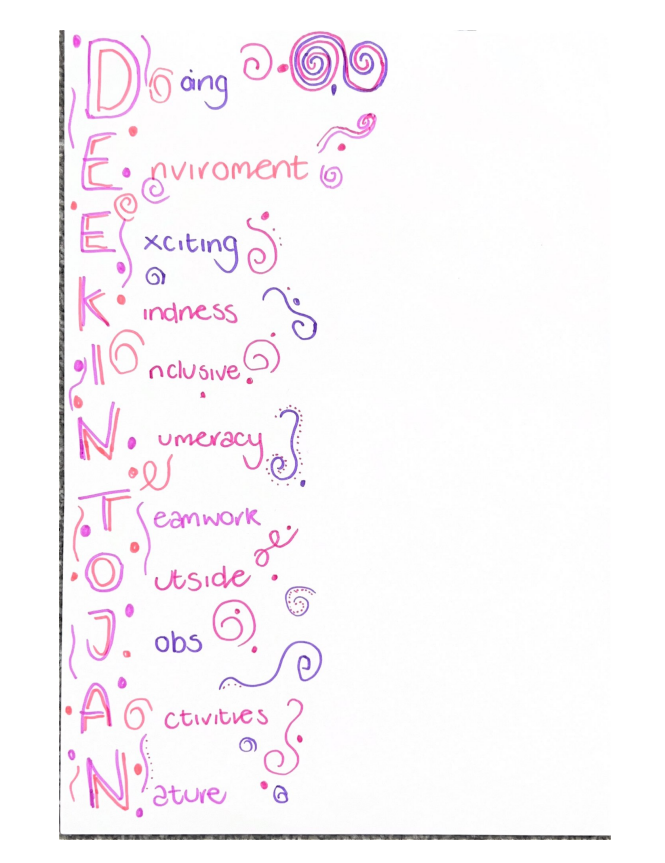 Doing
Enviroment
Exciting
Kindness
Inclusive
Numeracy
Teamwork
Outside
Jobs
Activities
Nature